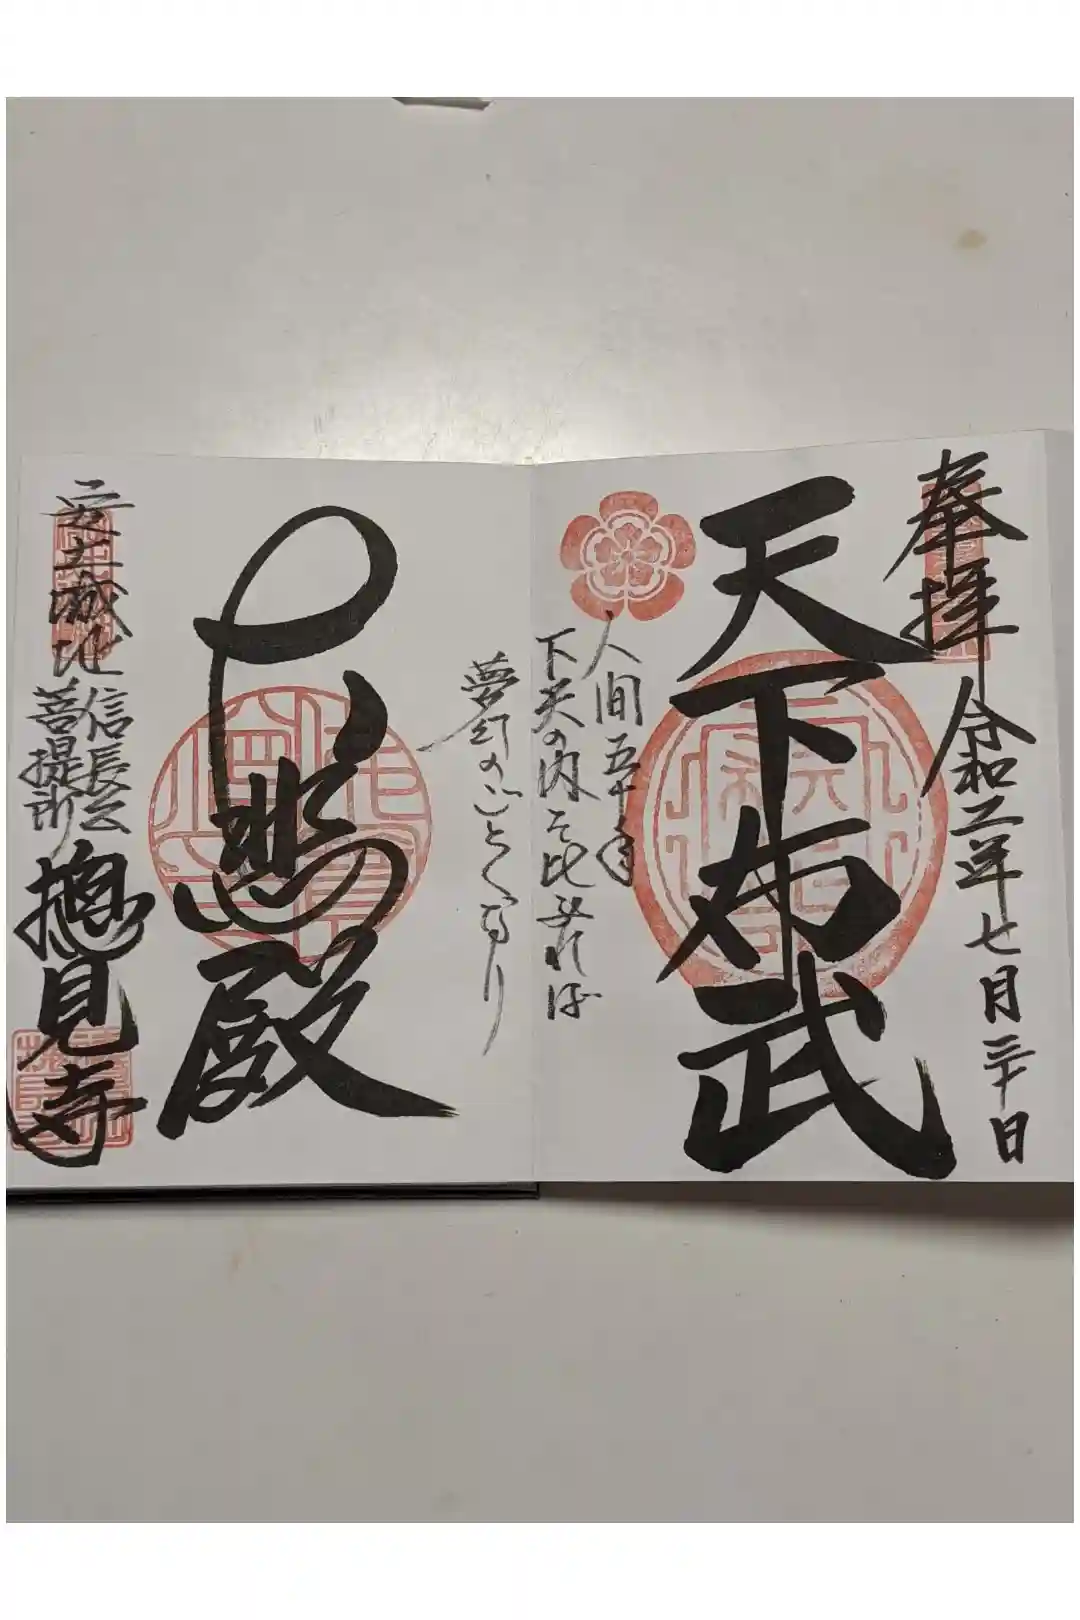 奉拝
令和二年七月三十日
天下布武
人間五十年
下天の内を比ぶれば
夢幻のごとくなり
殿
安土城址
信長公
菩提所
摠見寺